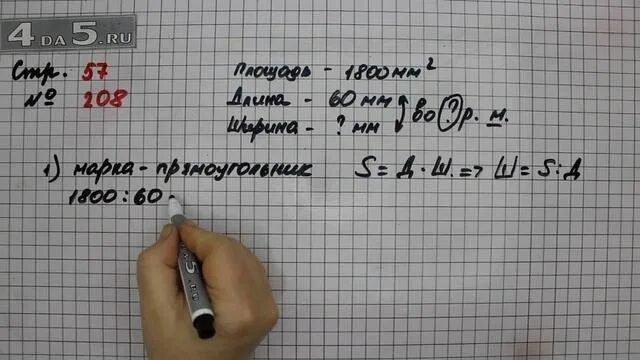 4 DA 5.RU
Стр. 57
№ 208
Площадь - 1800 мм²
Длина - 60 мм
Ширина - ? мм
во ? р. м.
1) марка - прямоугольник
S = Д · Ш. => Ш = S : Д
1800 : 60
4 DA 5.RU